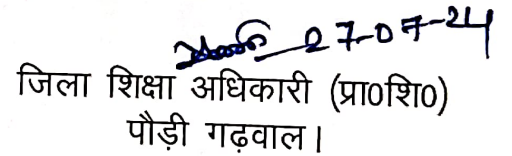 27-07-24
जिला शिक्षा अधिकारी (प्रा0शि0)
पौड़ी गढ़वाल।